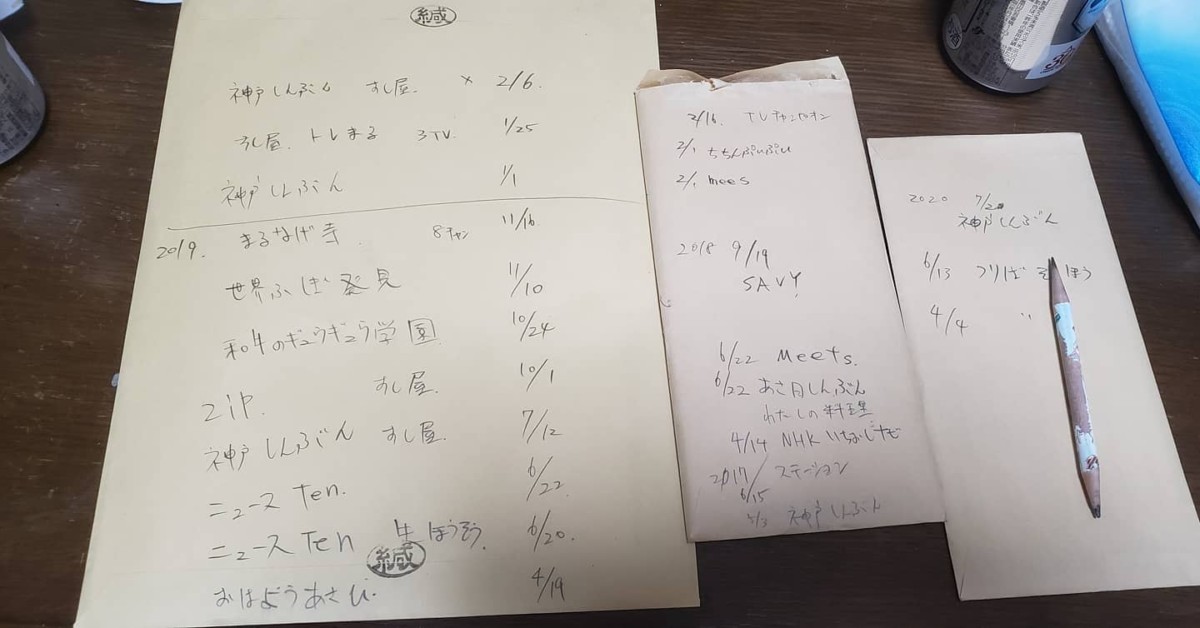 緘
神戸しんぶん すし屋. × 2/6.
すし屋. トレまる 3TV. 1/25
神戸しんぶん 1/1
2019. まるなげ寺. 8チャン 11/16
世界ふしぎ発見 11/10
和牛のギュウギュウ学園 10/24
ZIP. すし屋. 10/1
神戸しんぶん すし屋. 7/12
ニュース Ten. 6/22.
ニュース Ten 生ほうそう. 6/20.
緘
おはようあさひ. 4/19
TVチャンピオン
2/1 ちちんぷいぷい
2/1 mees
2018 9/19
SAVY
6/22 Meets.
6/22 あさ日しんぶん
わたしの料理
4/14 NHK
2017/ ステーション
6/15
5/3 神戸しんぶん
2020
神戸しんぶん
6/13
4/4 〃